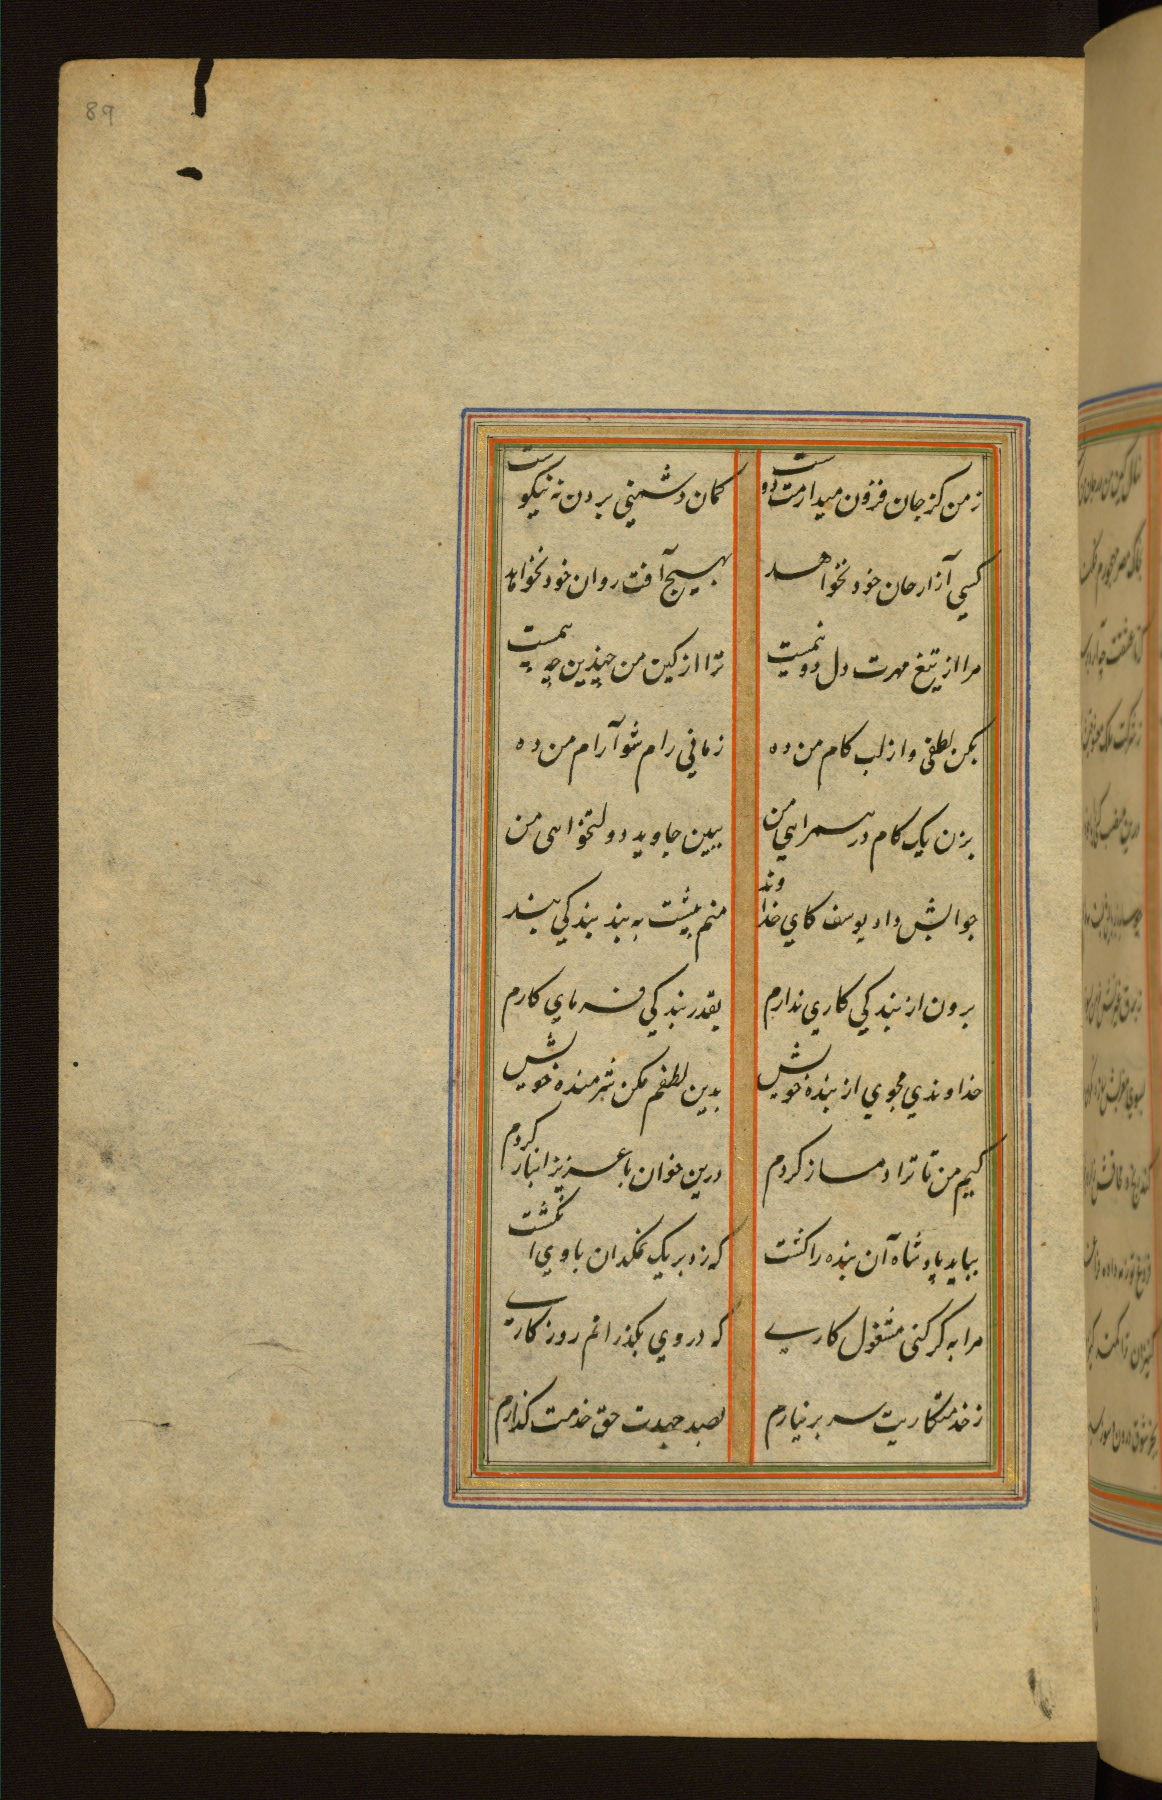 89
ز من کز جان فزون میدارمت دوست کمان دشمنی بردن نه نیکوست
کسی آزار جان خود نخواهد بهیچ آفت روان خود نخواهد
مرا از تیغ مهرت دل دو نیمست ترا از کین من چندین چه بیمست
بکن لطفی و از لب کام من ده زمانی رام شو آرام من ده
بزن یک کام در همراهی من ببین جاوید دولتخواهی من
جوابش داد یوسف کای خداوند منم پیشت به بند بندکی بند
برون از بندکی کاری ندارم بقدر بندکی فرمای کارم
خداوندی مجوی از بنده خویش بدین لطفم مکن شرمنده خویش
کیم من تا ترا دمساز کردم درین خوان با عزیز انباز کردم
بباید پادشاه آن بنده را کشت که زد بر یک نمکدان با وی انکشت
مرا به کر کنی مشغول کاری که در وی بکذرانم روزکاری
ز خدمتکاریت سر بر نیارم بصد جهدت حق خدمت کذارم